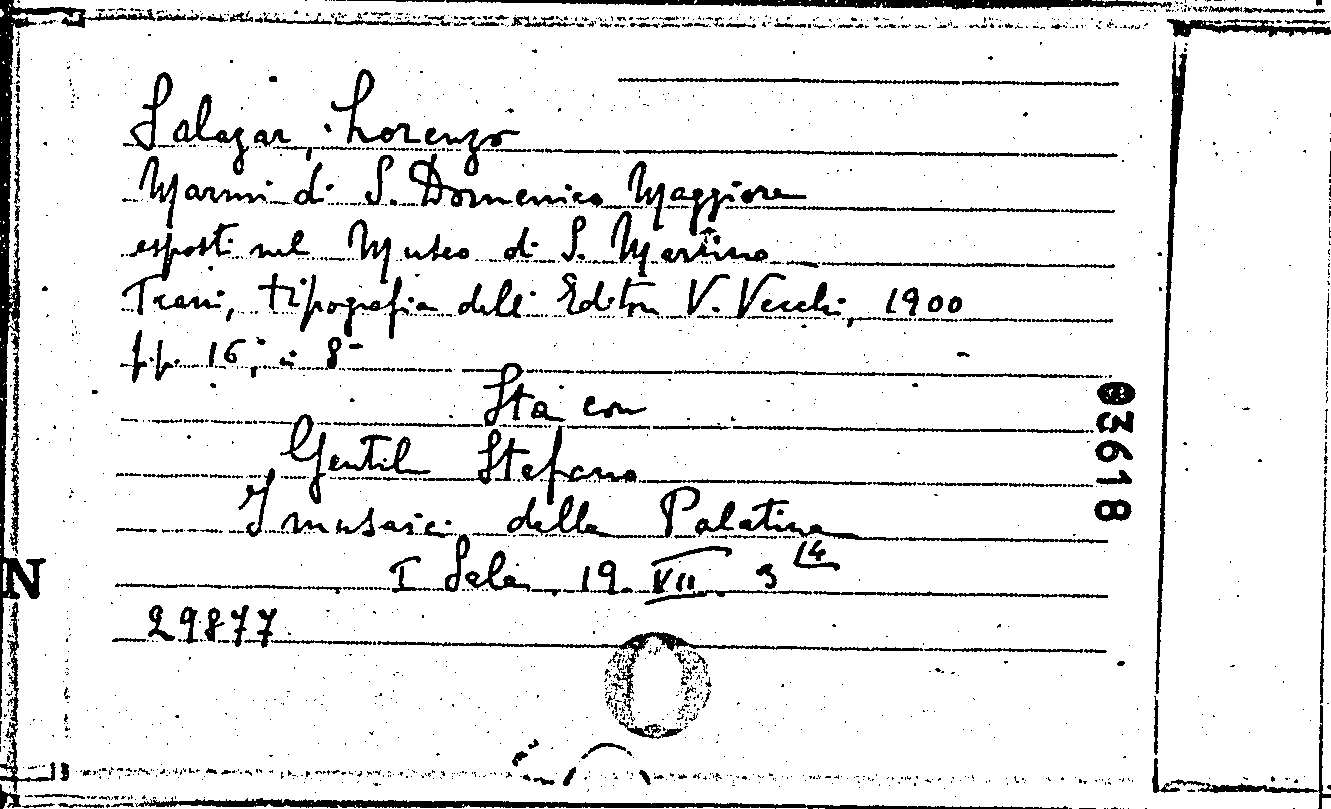 Salazar, Lorenzo
Marmi di S. Domenico Maggiore
esposti nel Museo di S. Martino
Trani, tipografia dell' Editore V. Vecchi, 1900
pp. 16; in 8°
Sta con
Gentile Stefano
I musaici della Palatina
I Sala 19. VII. 3 14
29877
03618
N